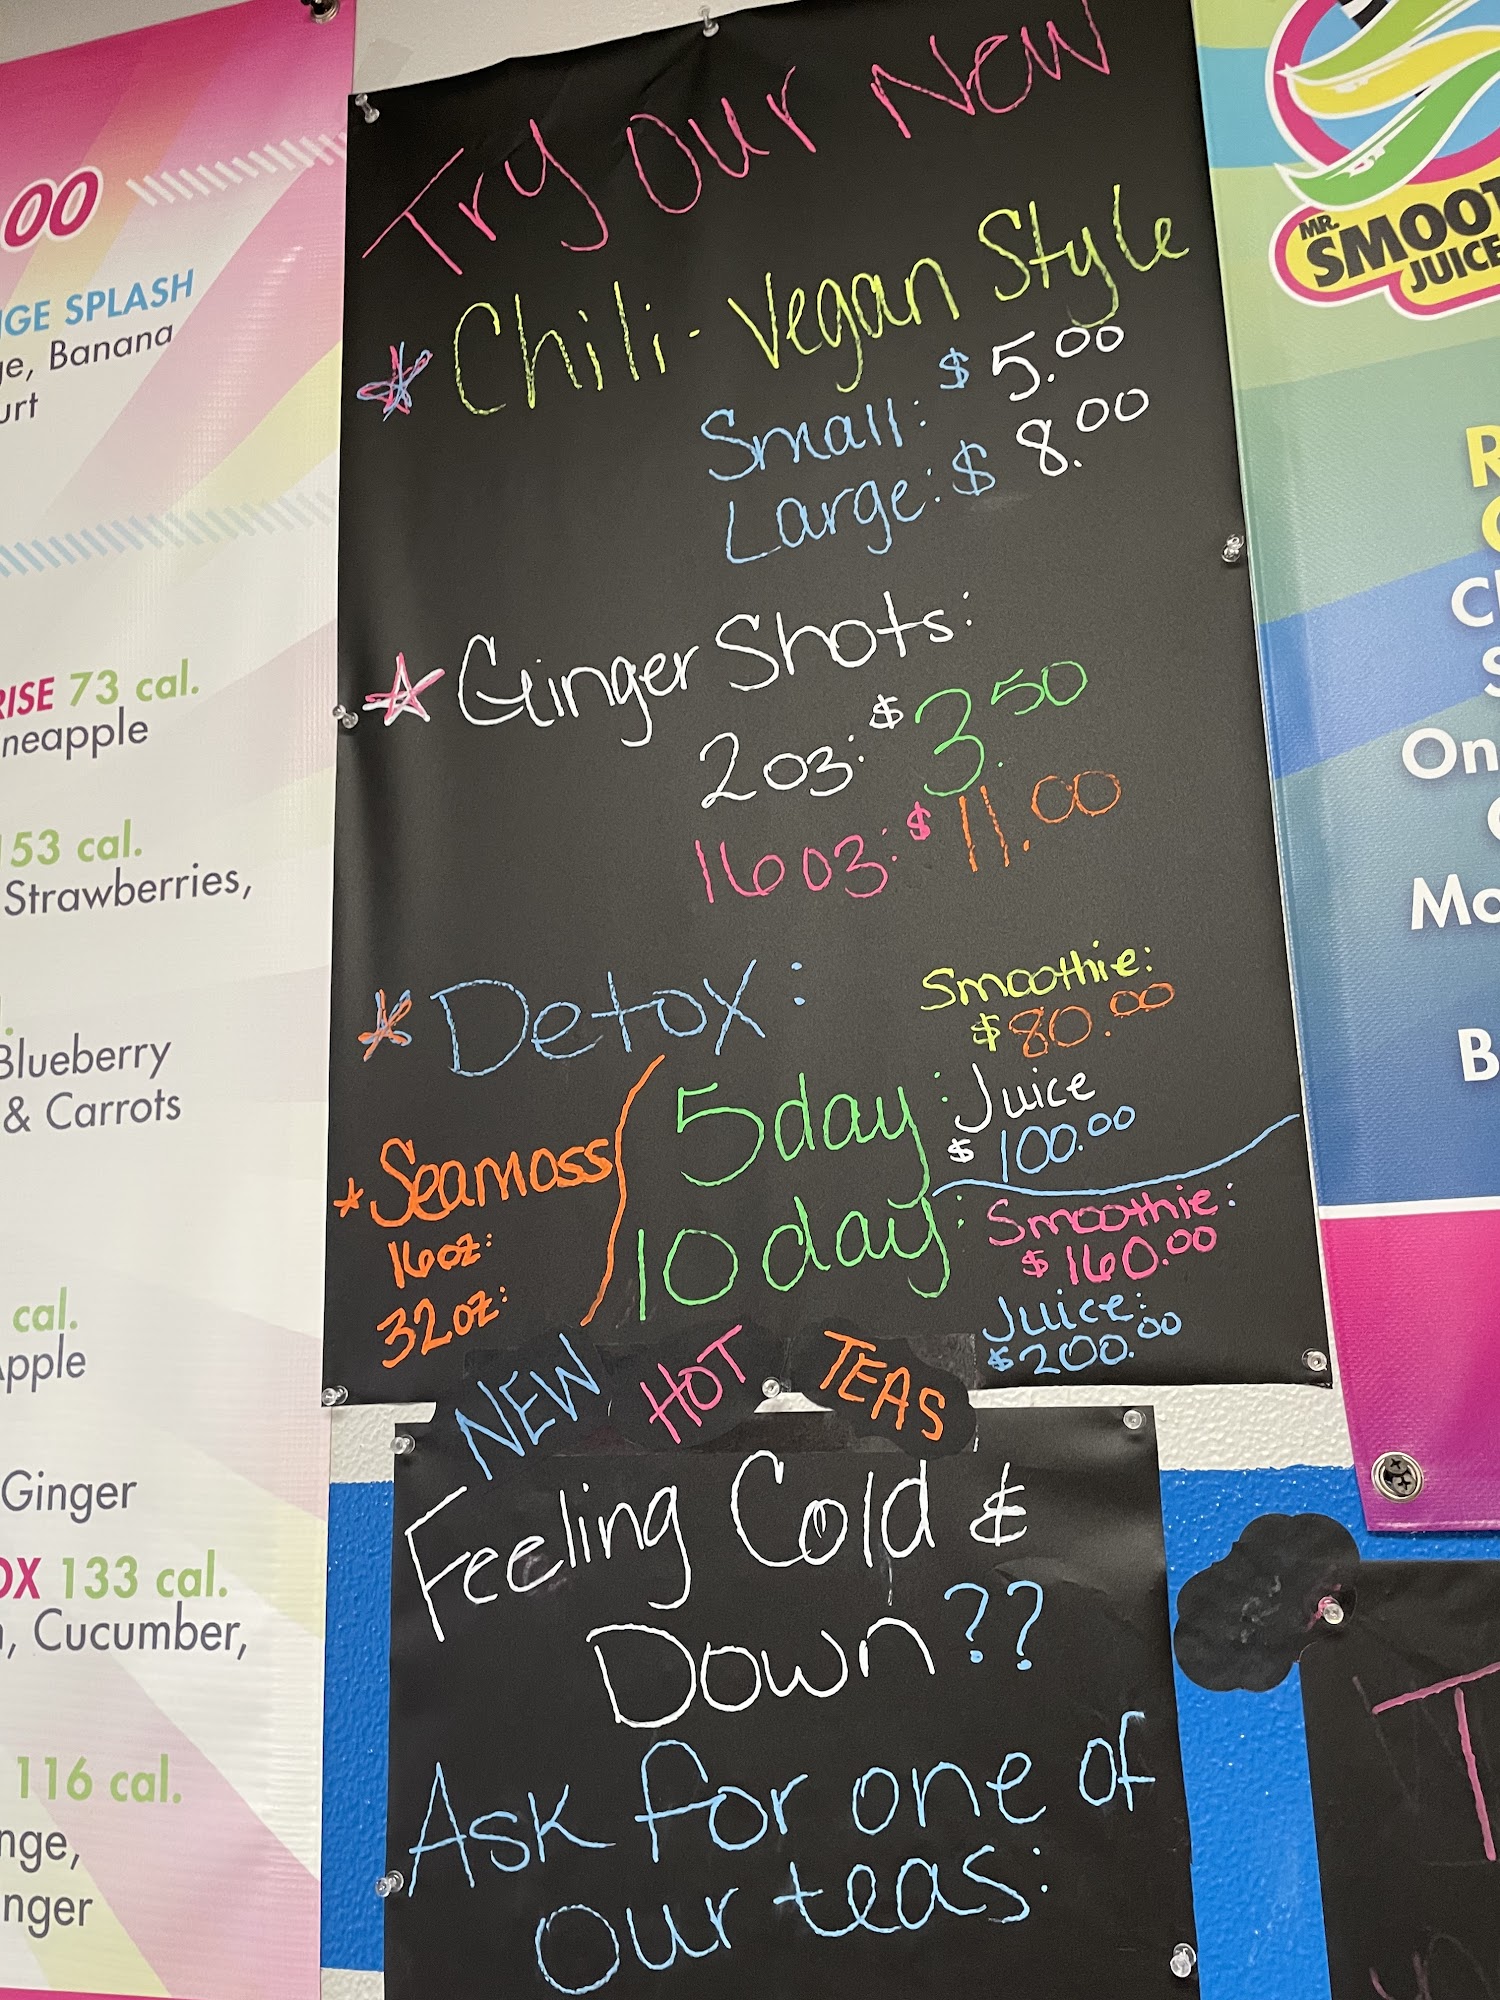 00
GE SPLASH
Banana
RISE 73 cal.
153 cal.
Strawberries,
Blueberry
& Carrots
cal.
Apple
Ginger
OX 133 cal.
Cucumber,
116 cal.
Try Our New
Chili - Vegan Style
Small: $ 5.00
Large: $ 8.00
Ginger Shots:
2oz: $3.50
16oz: $11.00
Detox:
5day:
Smoothie:
$80.00
Juice
$ 100.00
10 day:
Smoothie:
$160.00
Juice:
$200.00
Seamoss
16oz:
32oz:
NEW HOT TEAS
Feeling Cold &
Down??
Ask for one of
our teas:
MR.
SMOOT
JUICE
On
Mo
B
T